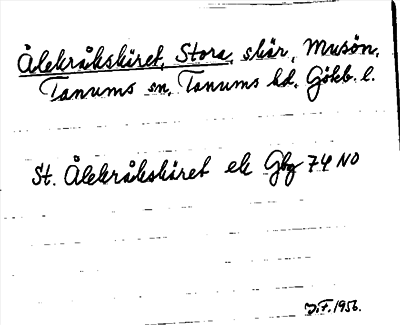 Ålekråkskäret, Stora, skär, Musön,
Tanums sn, Tanums hd, Gökb. l.
St. Ålekråkskäret ek Gbg 74 NO
J.F. 1956.